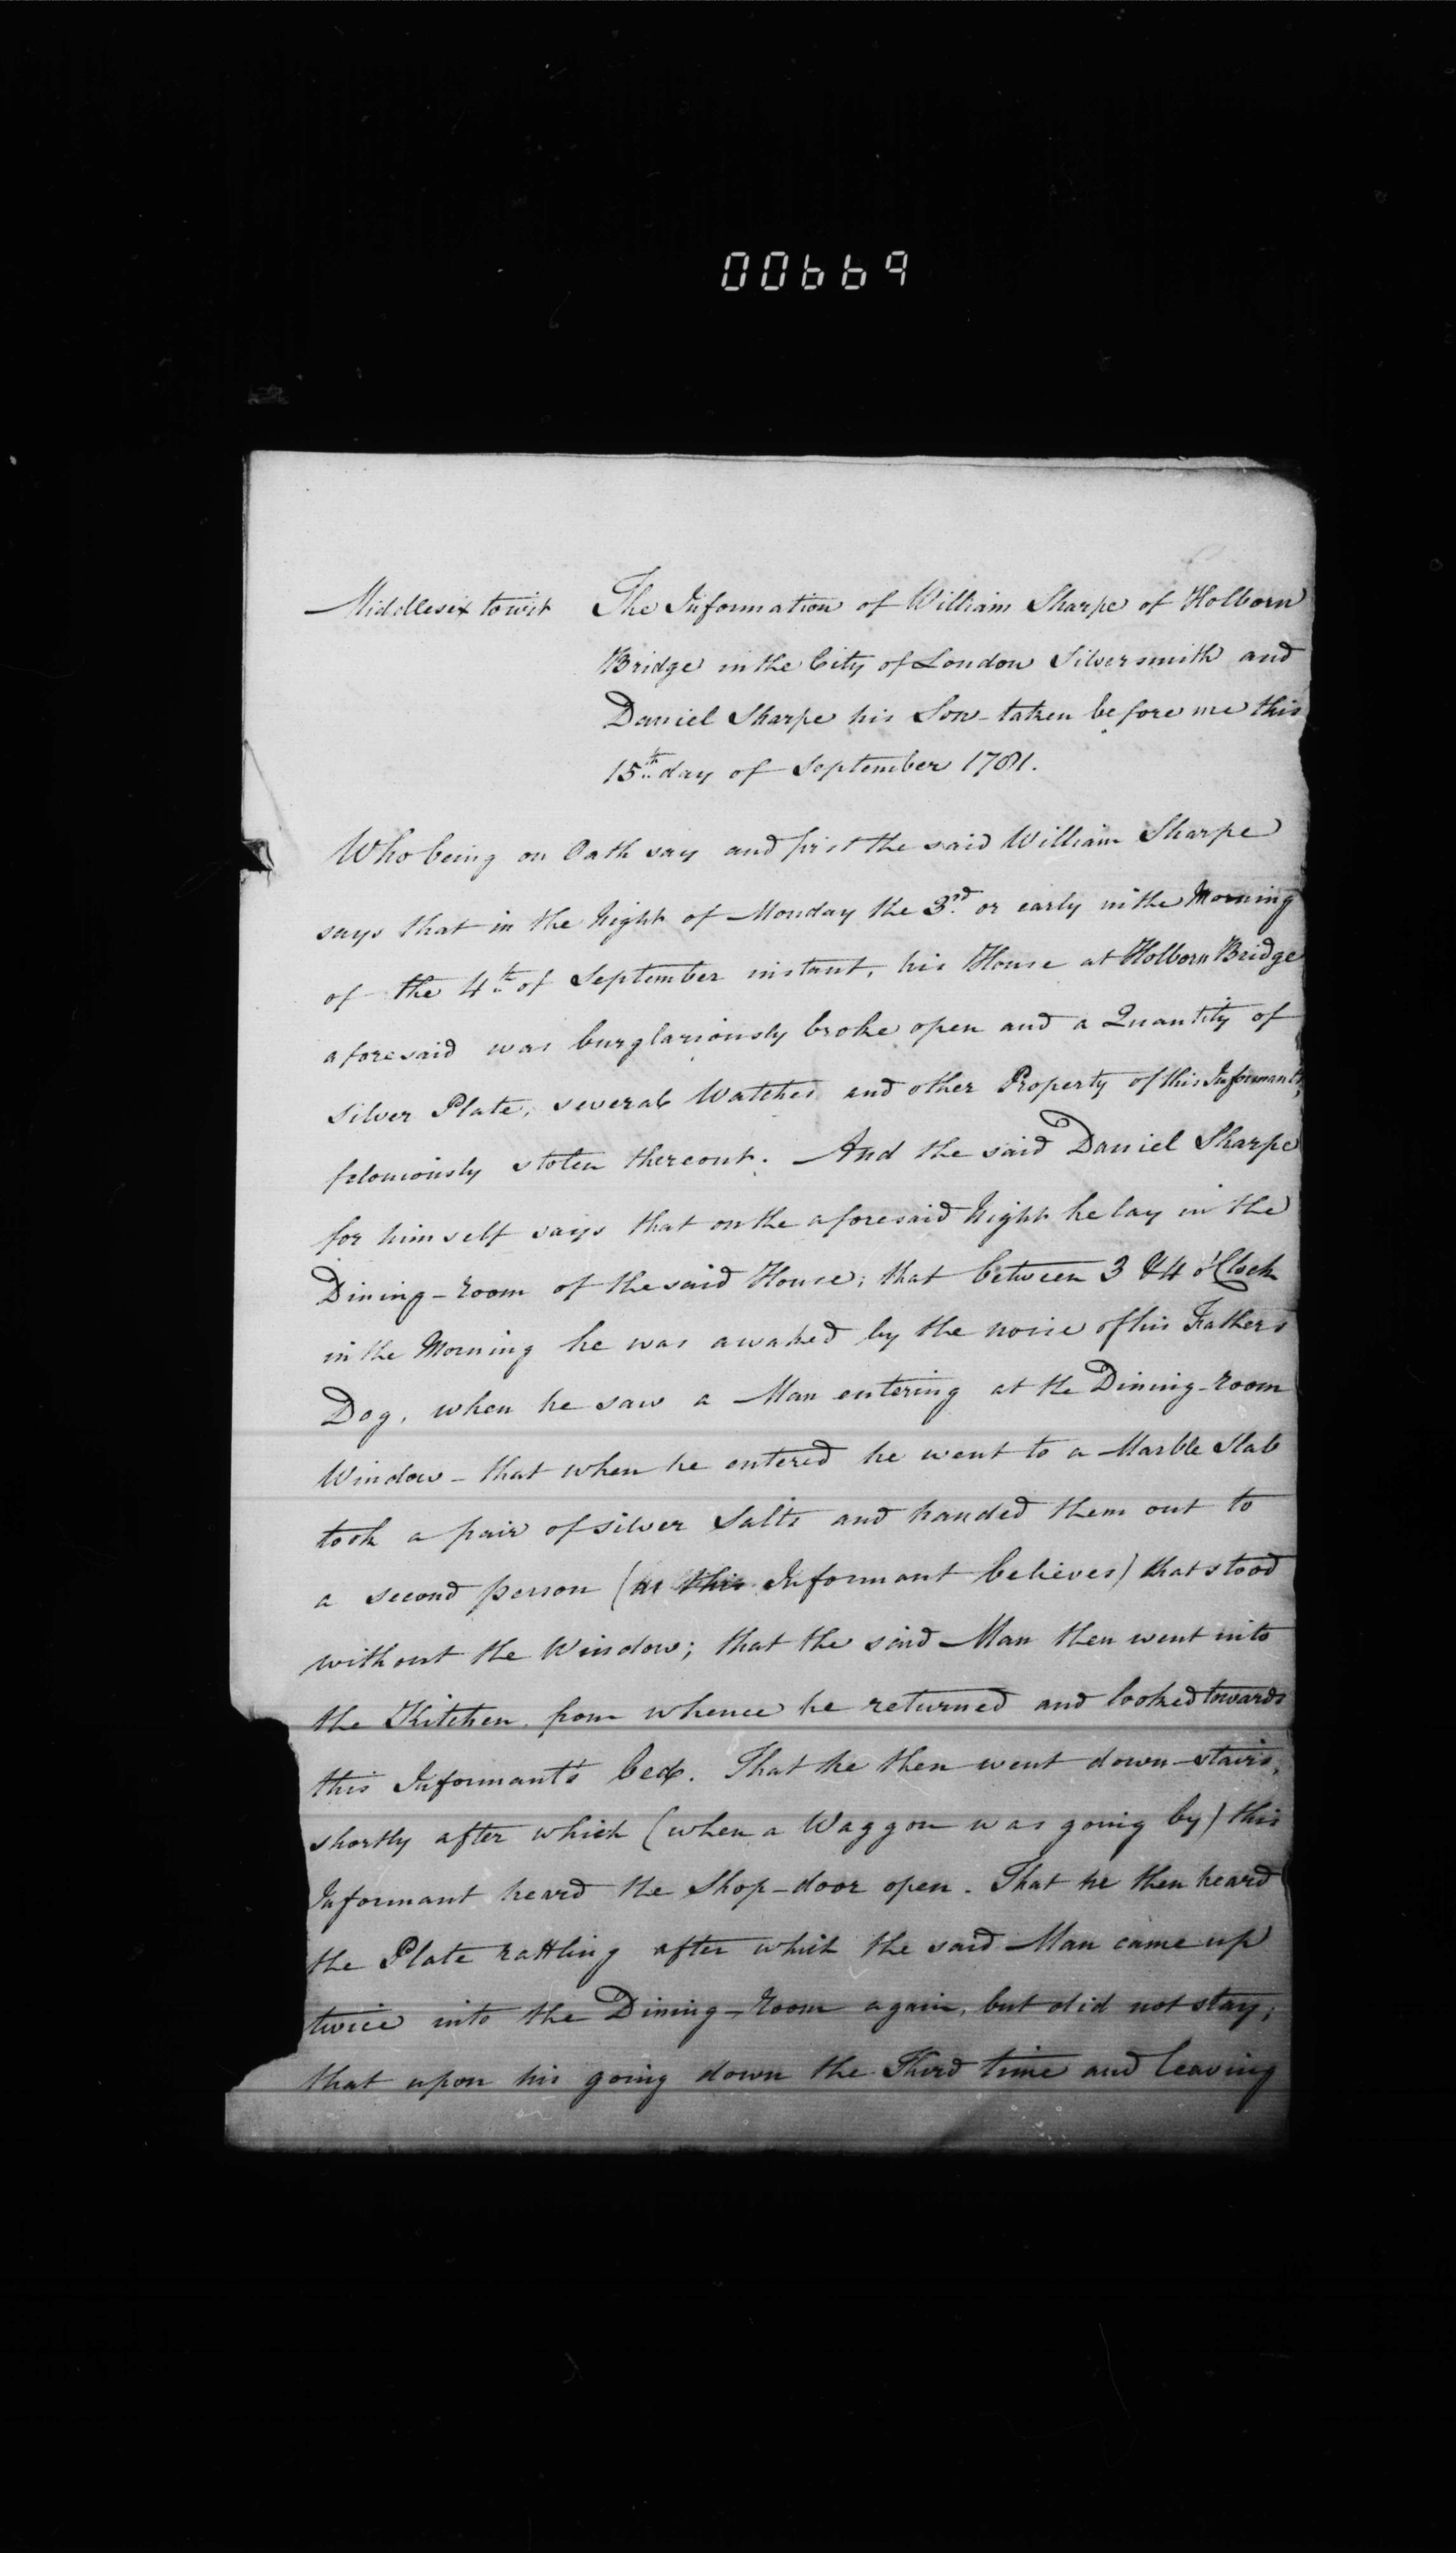 00669
Middlesex towit The Information of William Sharpe of Holborn
Bridge in the City of London Silversmith and
Daniel Sharpe his Son - taken before me this
15th day of September 1781.
Who being on Oath say and first the said William Sharpe
says that in the Night of Monday the 3rd. or early in the Morning
of the 4th. of September instant, his House at Holborn Bridge
aforesaid was burglariously broke open and a Quantity of
Silver Plate, several Watches and other Property of this Informant's,
feloniously stolen thereout. And the said Daniel Sharpe
for himself says that on the aforesaid Night he lay in the
Dining-room of the said House; that between 3 & 4 o'Clock
in the Morning he was awaked by the noise of his Fathers
Dog, when he saw a Man entering at the Dining-room
Window - that when he entered he went to a Marble Slab
took a pair of silver Salts and handed them out to
a second person (as this Informant believes) that stood
without the Window; that the said Man then went into
the Kitchen, from whence he returned and looked towards
this Informant's bed. That he then went down-stairs,
shortly after which (when a Waggon was going by) this
Informant heard the Shop-door open. That he then heard
the Plate rattling after which the said Man came up
twice into the Dining-room again, but did not stay;
that upon his going down the Third time and leaving